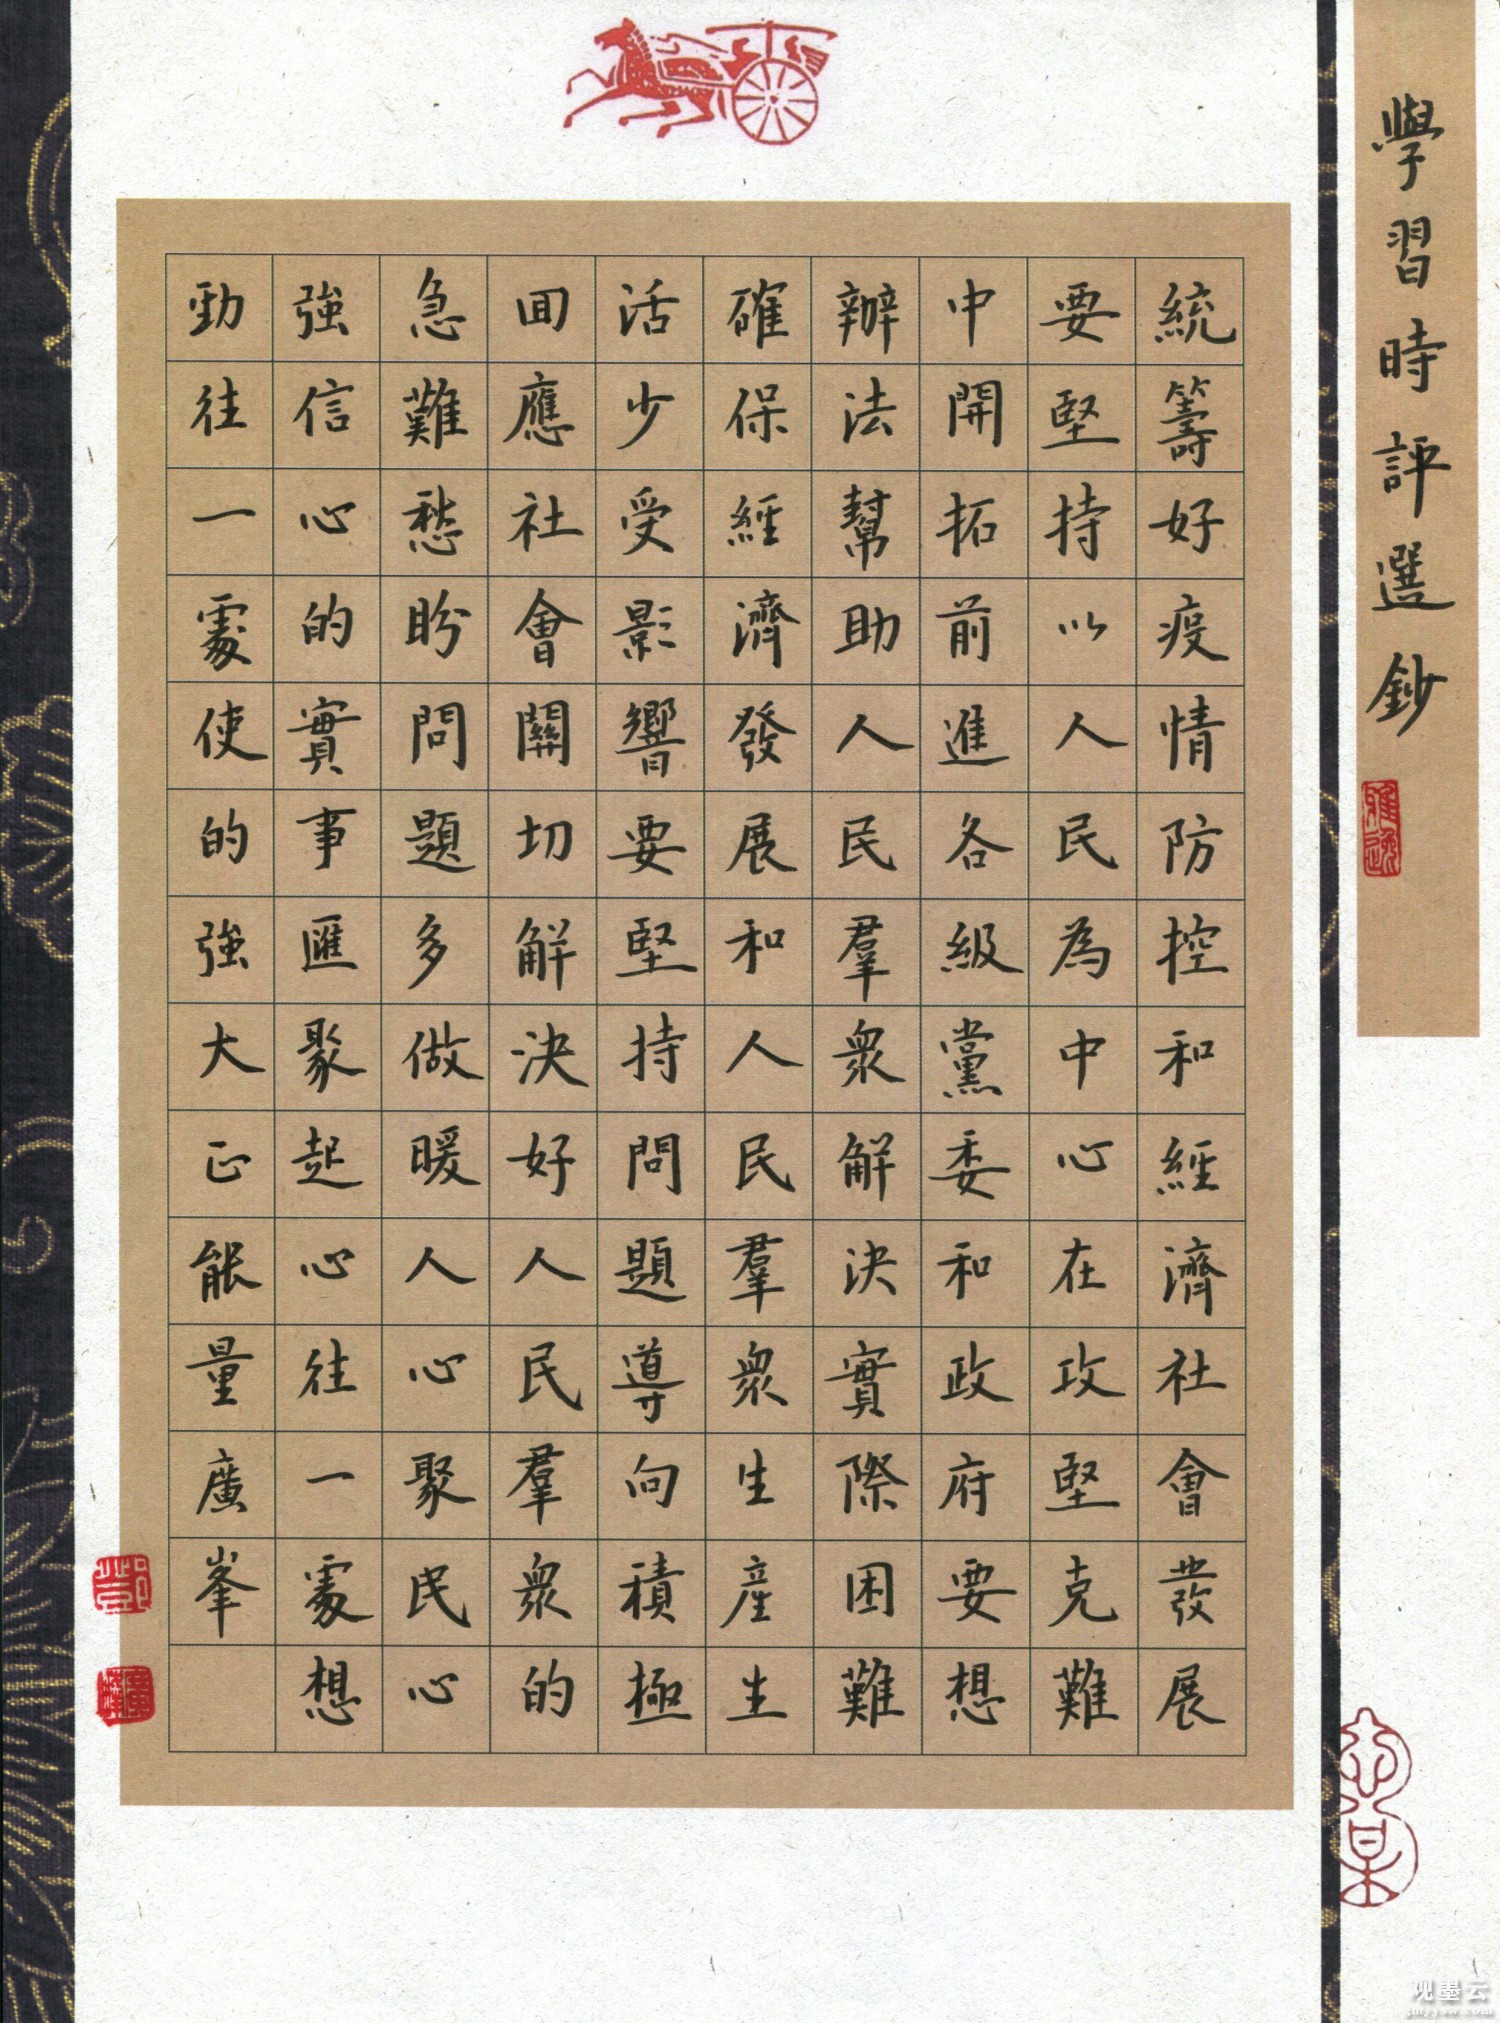 學習時評選鈔
雅逸
統籌好疫情防控和經濟社會發展
要堅持以人民為中心在攻堅克難
中開拓前進各級黨委和政府要想
辦法幫助人民羣衆解決實際困難
確保經濟發展和人民羣衆生產生
活少受影響要堅持問題導向積極
回應社會關切解決好人民羣衆的
急難愁盼問題多做暖人心聚民心
強信心的實事匯聚起心往一處想
勁往一處使的強大正能量廣峯
鄧
廣峰
观墨云